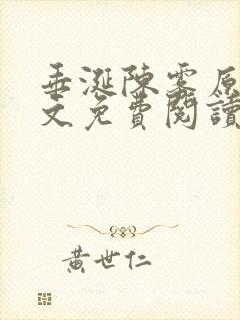 垂涎陳雾原
文免費閱讀
黃世仁